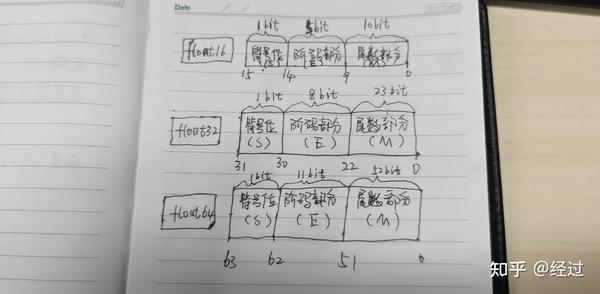 Date
1bit 5bit 10bit
float16 符号位 阶码部分 尾数部分
15 14 9 0
1bit 8bit 23bit
float32 符号位 阶码部分 尾数部分
(S) (E) (M)
31 30 22 0
1bit 11bit 52bit
float64 符号位 阶码部分 尾数部分
(S) (E) (M)
63 62 51 0
知乎 @经过